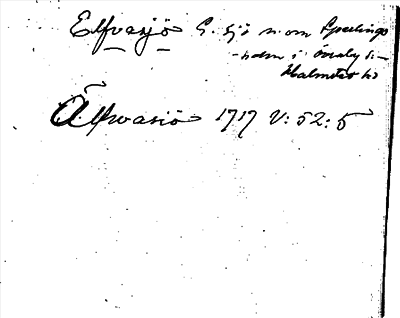 Elfvasjö G. sjö n. om Sperlings-
holm i Övraby s:n
Halmstad hd
Älfwasiö 1717 V: 52: 5